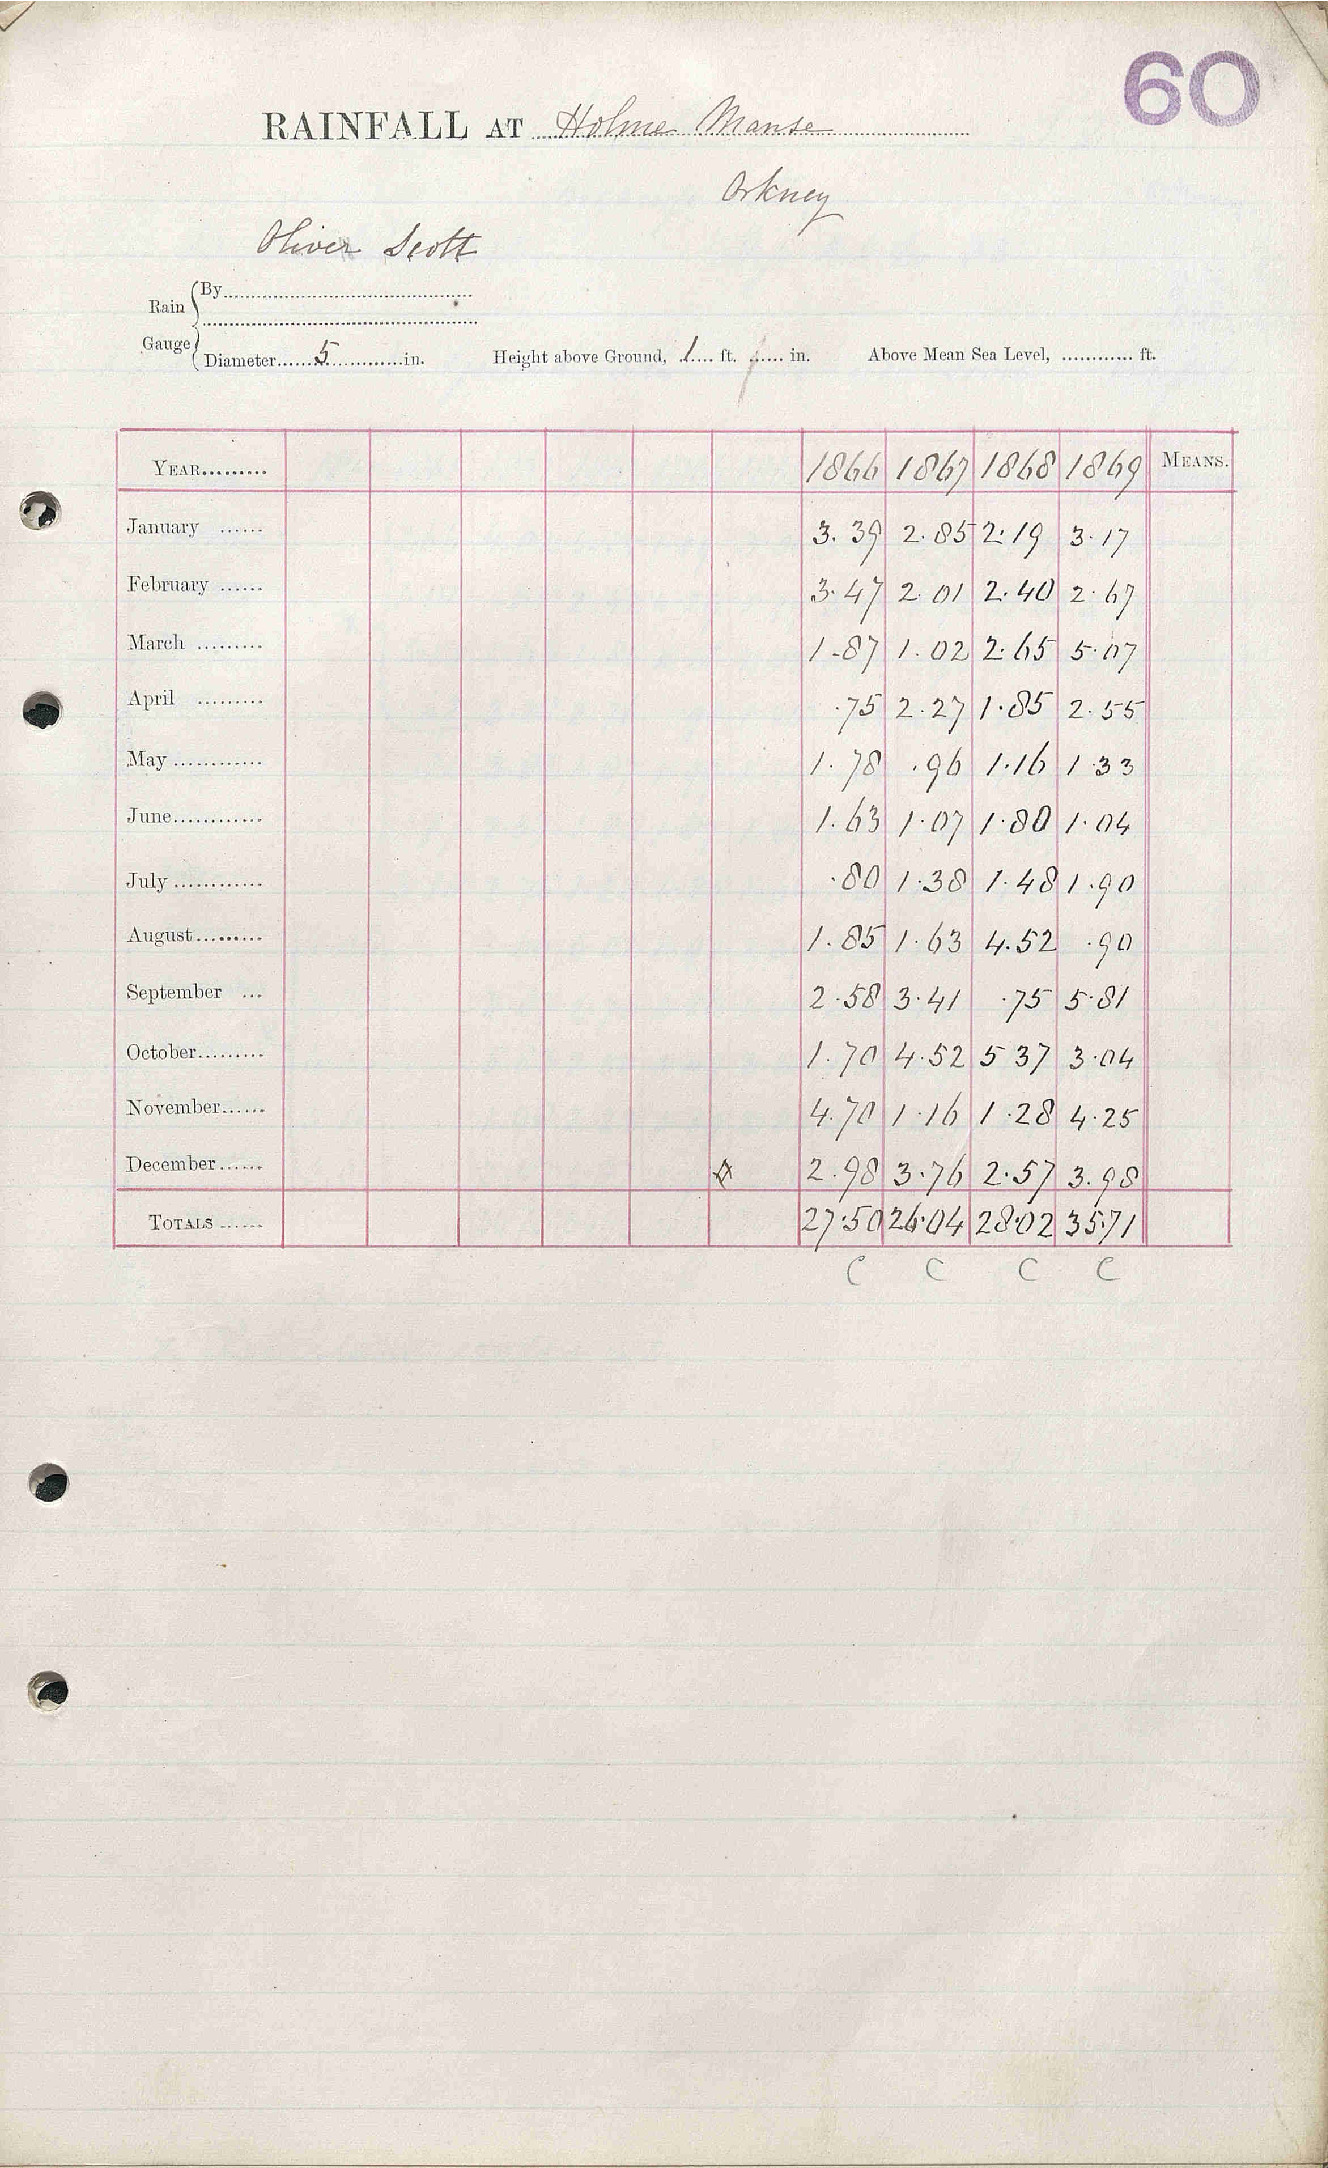 60
RAINFALL AT Holme Manse
Orkney
Oliver Scott
Rain Gauge { By
Diameter 5 in. Height above Ground, 1 ft. in. Above Mean Sea Level, ft.
YEAR 1866 1867 1868 1869 MEANS.
January 3.39 2.85 2.19 3.17
February 3.47 2.01 2.40 2.67
March 1.87 1.02 2.65 5.07
April .75 2.27 1.85 2.55
May 1.78 .96 1.16 1.33
June 1.63 1.07 1.80 1.04
July .80 1.38 1.48 1.90
August 1.85 1.63 4.52 .90
September 2.58 3.41 .75 5.81
October 1.70 4.52 5 37 3.04
November 4.70 1.16 1.28 4.25
December 2.98 3.76 2.57 3.98
TOTALS 27.50 26.04 28.02 35.71
C C C C